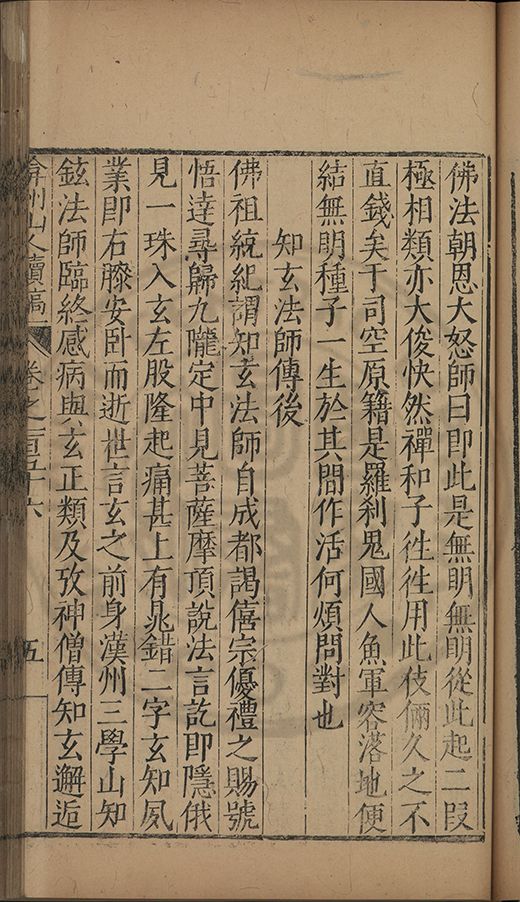 佛法朝恩大怒師曰即此是無明無明從此起二段
極相類亦大俊快然禪和子徃徃用此伎倆久之不
直錢矣于司空原籍是羅刹鬼國人魚軍容落地便
結無明種子一生於其間作活何煩問對也
知玄法師傳後
佛祖統紀謂知玄法師自成都謁僖宗優禮之賜號
悟達尋歸九隴定中見菩薩摩頂說法言訖即隱俄
見一珠入玄左股隆起痛甚上有鼂錯二字玄知夙
業即右膝安卧而逝世言玄之前身漢州三學山知
鉉法師臨終感病與玄正類及攷神僧傳知玄邂逅
弇州山人續稿 卷之一百五十六 五